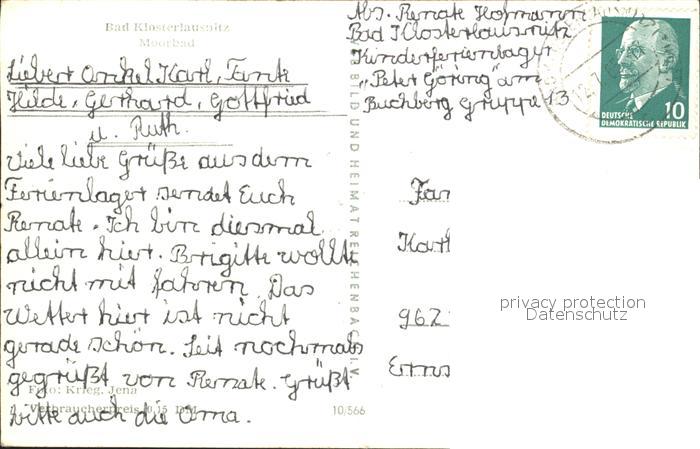 Bad Klosterlausnitz
Moorbad
Lieber Onkel Karl, Tante
Hilde, Gerhard, Gottfried
u. Ruth.
Viele liebe Grüße aus dem
Ferienlager sendet Euch
Renate. Ich bin diesmal
allein hier. Brigitte wollte
nicht mit fahren. Das
Wetter hier ist nicht
gerade schön. Seit nochmals
gegrüßt von Renate. Grüßt
bitte auch die Oma.
Foto: Krieg, Jena
Verbraucherpreis 0,15 DM
10/566
BILD UND HEIMAT REICHENBACH I. V.
Abs. Renate Hofmann
Bad Klosterlausnitz
Kinderferienlager
"Peter Göring" am
Buchberg Gruppe 13
DEUTSCHE
DEMOKRATISCHE REPUBLIK
10
Fam
Karl
962
privacy protection
Datenschutz